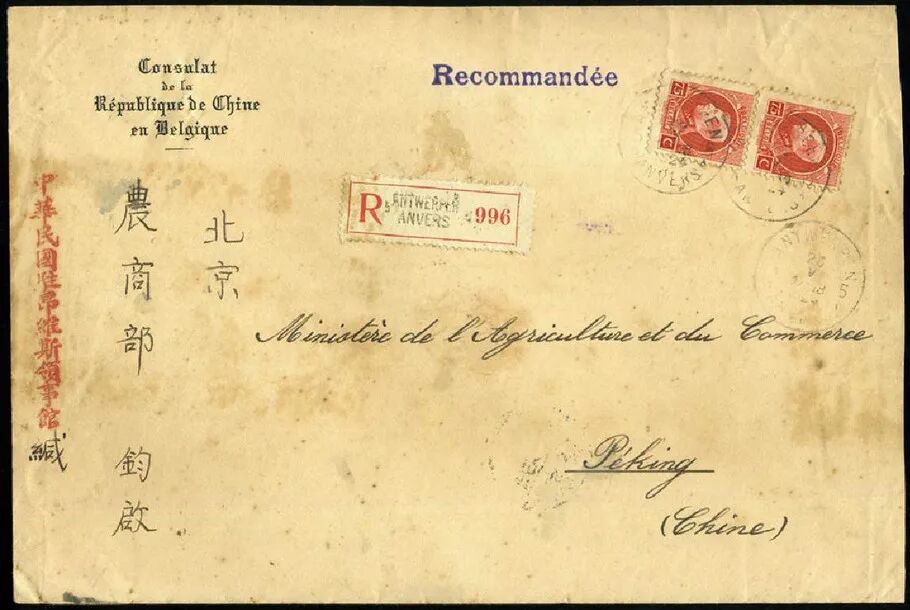 Consulat
de la
République de Chine
en Belgique
Recommandée
R
ANTWERPEN
ANVERS
996
中華民國駐昂維斯領事館緘
北京
農商部 鈞啟
Ministère de l'Agriculture et du Commerce
Péking
(Chine)